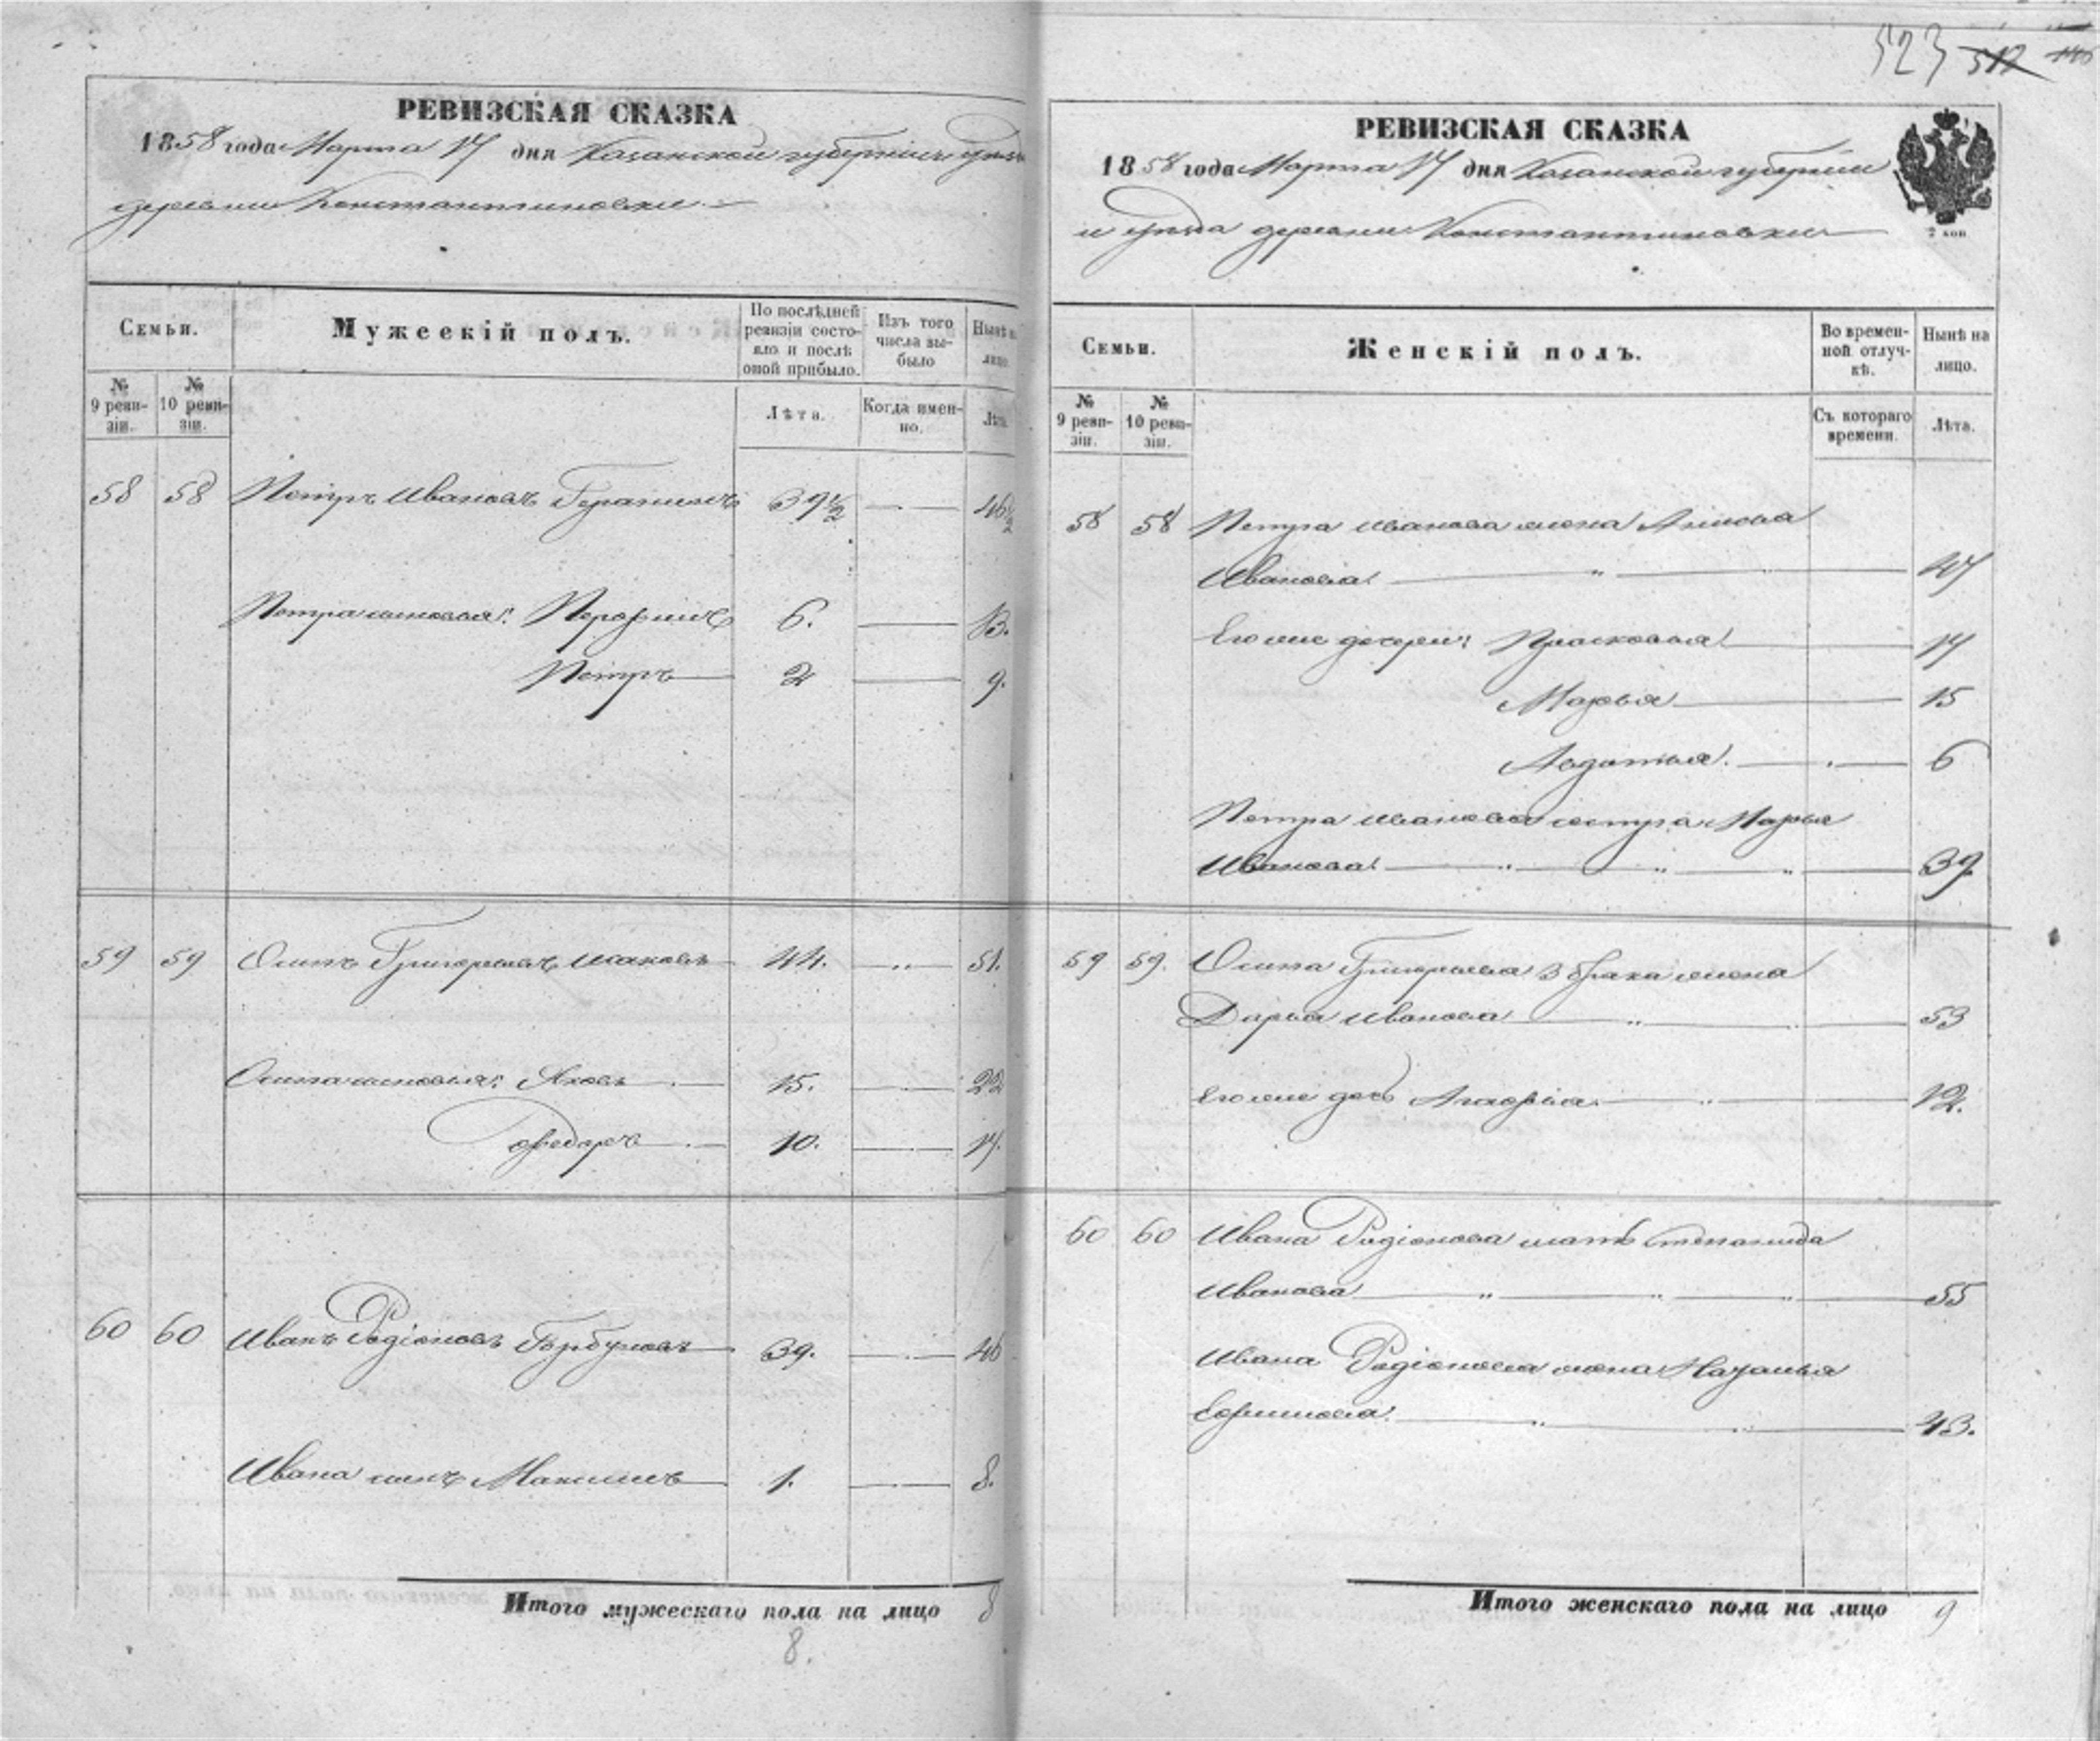 523 512
РЕВИЗСКАЯ СКАЗКА
1858 года Марта 17 дня Казанской губернии и уезда
деревни Константиновки
Семьи.
Мужескій полъ.
По послѣдней ревизіи состояло и послѣ оной прибыло.
Изъ того числа выбыло
Нынѣ на лицо.
№ 9 ревизіи.
№ 10 ревизіи.
Лѣта.
Когда именно.
Лѣта.
58 58 Петръ Ивановъ 39½ 46½
Петра сыновья: Порфирій 6. 13.
Петръ 2 9.
59 59 Осипъ Григорьевъ Исаковъ 44. 51.
Осипа сыновья: Яковъ 15. 22
Федоръ 10. 17.
60 60 Иванъ Родіоновъ Горбуновъ 39. 46
Ивана сынъ Максимъ 1. 8.
Итого мужескаго пола на лицо 8
8.
РЕВИЗСКАЯ СКАЗКА
1858 года Марта 17 дня Казанской губерніи
и уезда деревни Константиновки
2 коп.
Семьи.
Женскій полъ.
Во временной отлучкѣ.
Нынѣ на лицо.
№ 9 ревизіи.
№ 10 ревизіи.
Съ котораго времени.
Лѣта.
58 58 Петра Иванова жена
Иванова 47
Его же дочери: Прасковья 17
Марья 15
Авдотья. 6
Петра Иванова сестра Марья
Иванова 39.
59 59. Осипа Григорьева 3 брака жена
Дарья Иванова 53
Его же дочь Агафья 12.
60 60 Ивана Родіонова мать Степанида
Иванова 55
Ивана Родіонова жена Наталья
Ефимова 43.
Итого женскаго пола на лицо 9